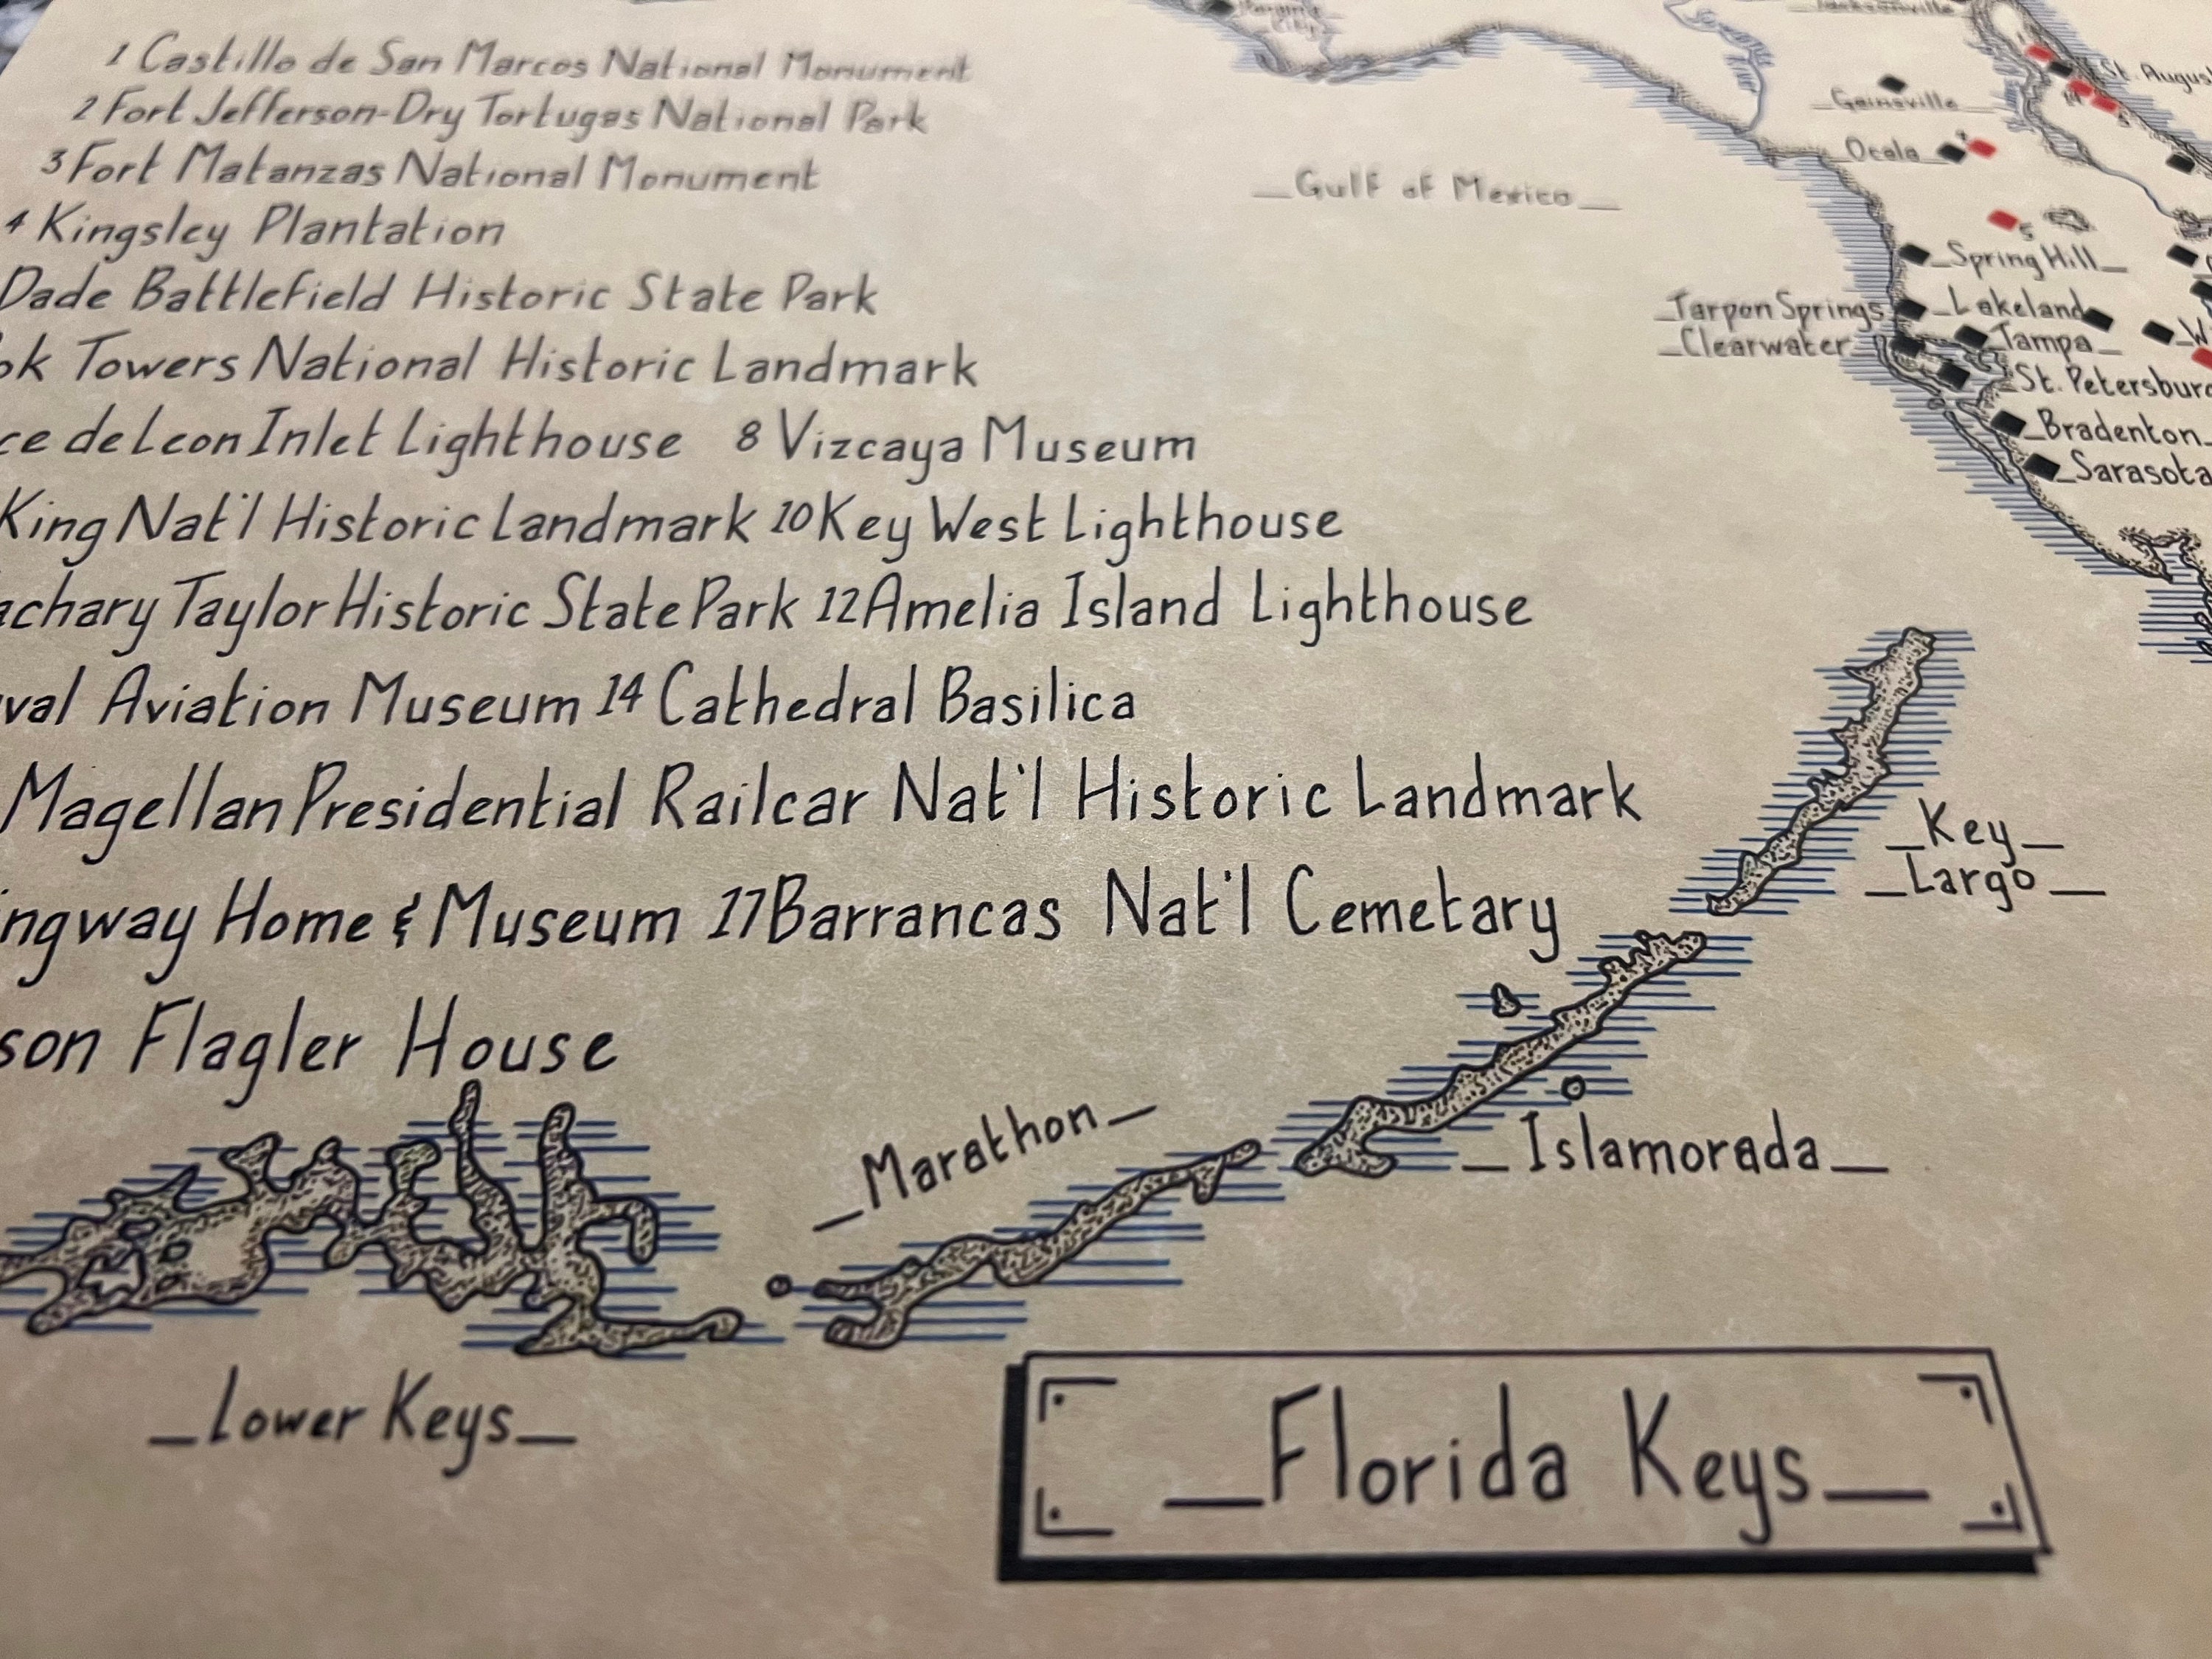 1 Castillo de San Marcos National Monument
2 Fort Jefferson-Dry Tortugas National Park
3 Fort Matanzas National Monument
4 Kingsley Plantation
Dade Battlefield Historic State Park
ok Towers National Historic Landmark
ce de Leon Inlet Lighthouse 8 Vizcaya Museum
King Nat'l Historic Landmark 10 Key West Lighthouse
achary Taylor Historic State Park 12 Amelia Island Lighthouse
val Aviation Museum 14 Cathedral Basilica
Magellan Presidential Railcar Nat'l Historic Landmark
ingway Home & Museum 17 Barrancas Nat'l Cemetary
son Flagler House
Gulf of Mexico
Jacksonville
St. August
Gainsville
Ocala
5
Spring Hill
Tarpon Springs
Lakeland
Clearwater
Tampa
St. Petersburg
Bradenton
Sarasota
Key
Largo
Islamorada
Marathon
Lower Keys
Florida Keys